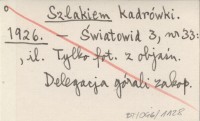 Szlakiem kadrówki.
1926. — Światowid 3, nr 33:
, il. Tylko fot. z objaśn.
Delegacja górali zakop.